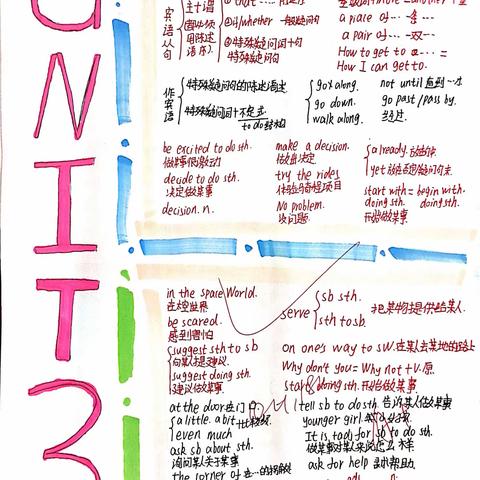 UNIT 3
宾语从句
主+谓
① that
② if/whether 一般疑问句
③ 特殊疑问词+句
a piece of … 一会
a pair of … 一双…
How to get to … =
How I can get to.
作宾语
特殊疑问句的陈述语序
特殊疑问词+不定式
to do 结构
go x along.
go down.
walk along.
not until 直到…才
go past/pass by.
经过.
be excited to do sth.
做某事很激动
decide to do sth.
决定做某事
decision. n.
make a decision.
做出决定
try the rides
体验乘骑项目
No problem.
没问题
already.
yet
start with = begin with.
doing sth. doing sth.
开始做某事
in the space World.
在太空世界
be scared.
感到害怕
suggest sth to sb
向某人提建议
suggest doing sth.
建议做某事
at the door 在门口
a little. a bit
even much
ask sb about sth.
询问某人关于某事
the corner of 在…的拐角处
serve
sb sth.
sth to sb.
把某物提供给某人.
on one's way to sw. 在某人去某地的路上
Why don't you = Why not + V.原
Start doing sth. 开始做某事
tell sb to do sth. 告诉某人做某事
younger girl.
It is adj for sb to do sth.
做某事对某人来说怎么样
ask for help 寻求帮助.